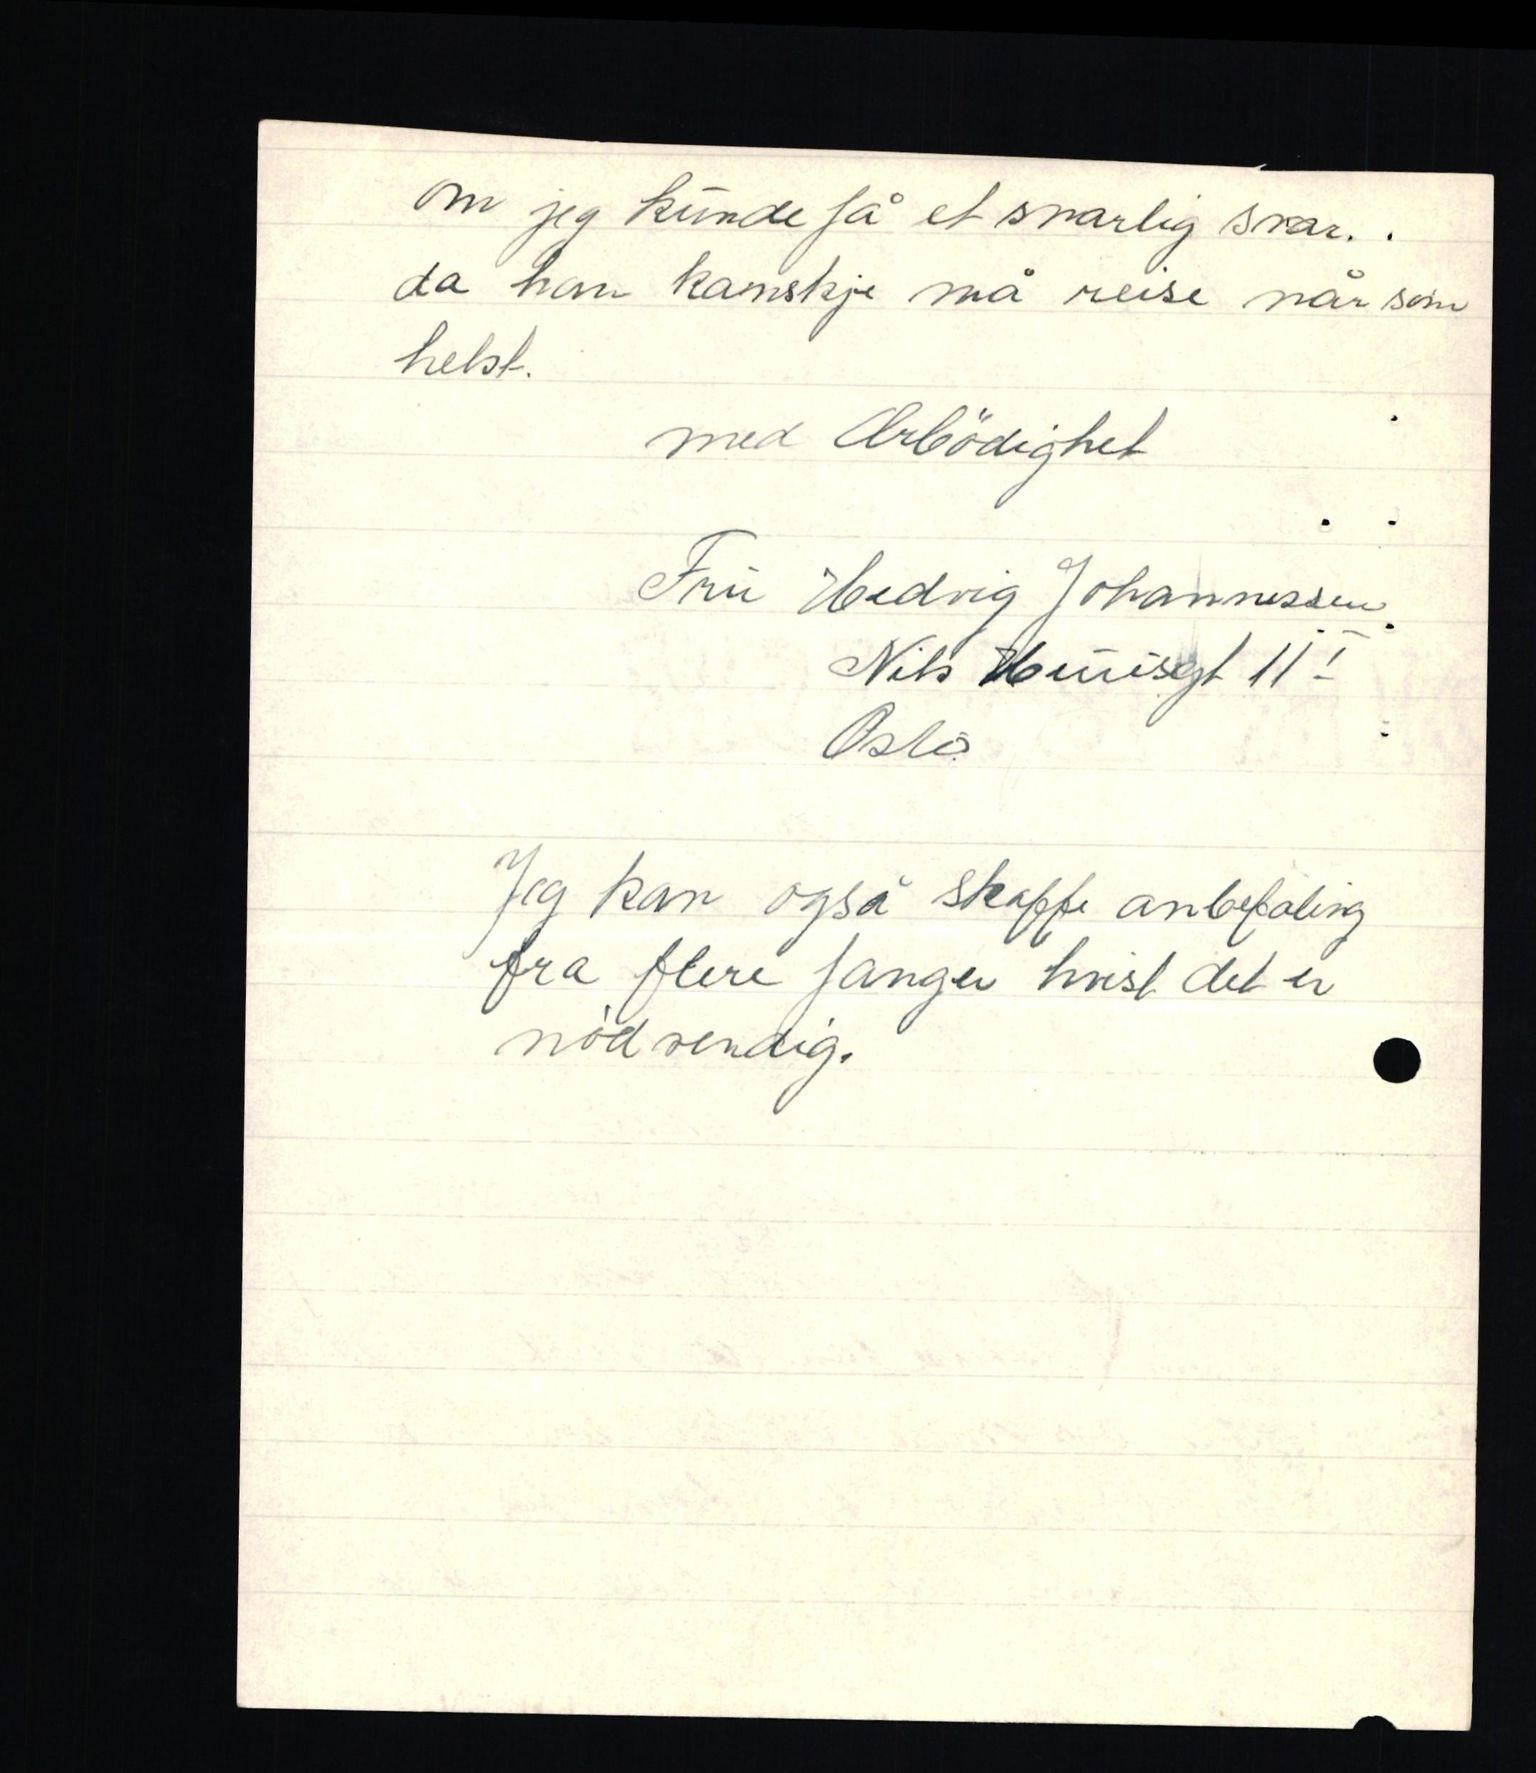 om jeg kunde få et snarlig svar.
da han kanskje må reise når som
helst.
med Ærbödighet
Fru Hedvig Johannessen
Nils Huusgt 11 I
Oslo
Jeg kan også skaffe anbefaling
fra flere fanger hvist det er
nödvendig.